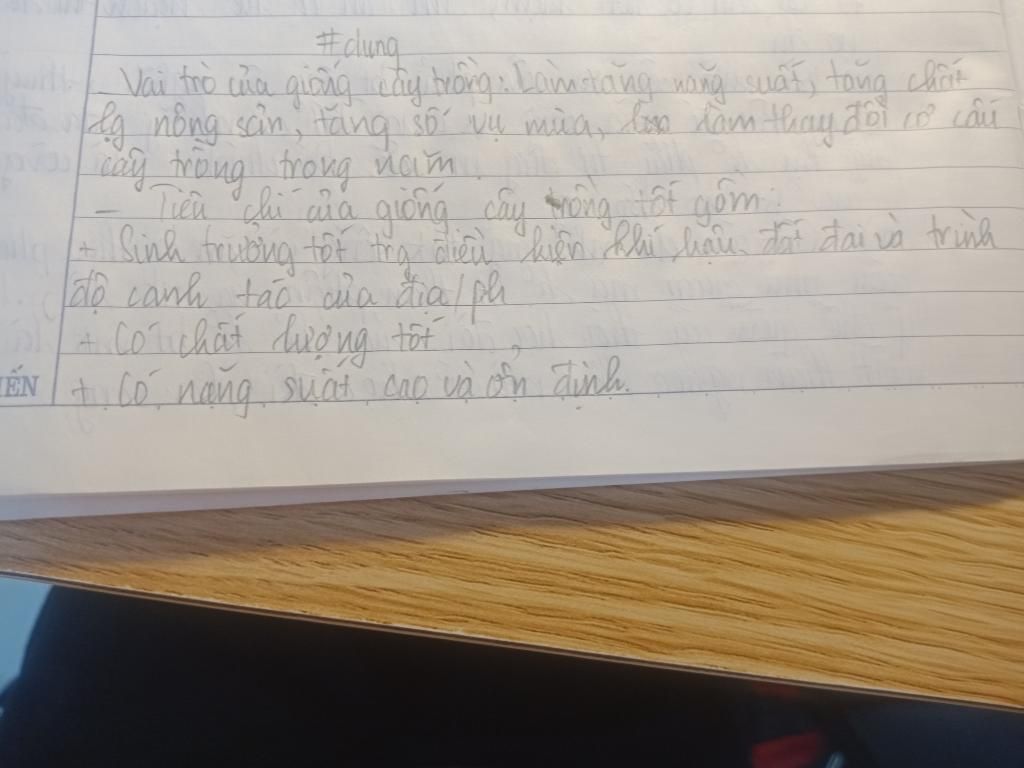 #dung
- Vai trò của giống cây trồng: Làm tăng năng suất, tăng chất
lg nông sản, tăng số vụ mùa, làm thay đổi cơ cấu
cây trồng trong năm.
- Tiêu chí của giống cây trồng tốt gồm:
+ Sinh trưởng tốt trg điều kiện khí hậu, đất đai và trình
độ canh tác của địa/ph
+ Có chất lượng tốt
+ Có năng suất cao và ổn định.
ẾN